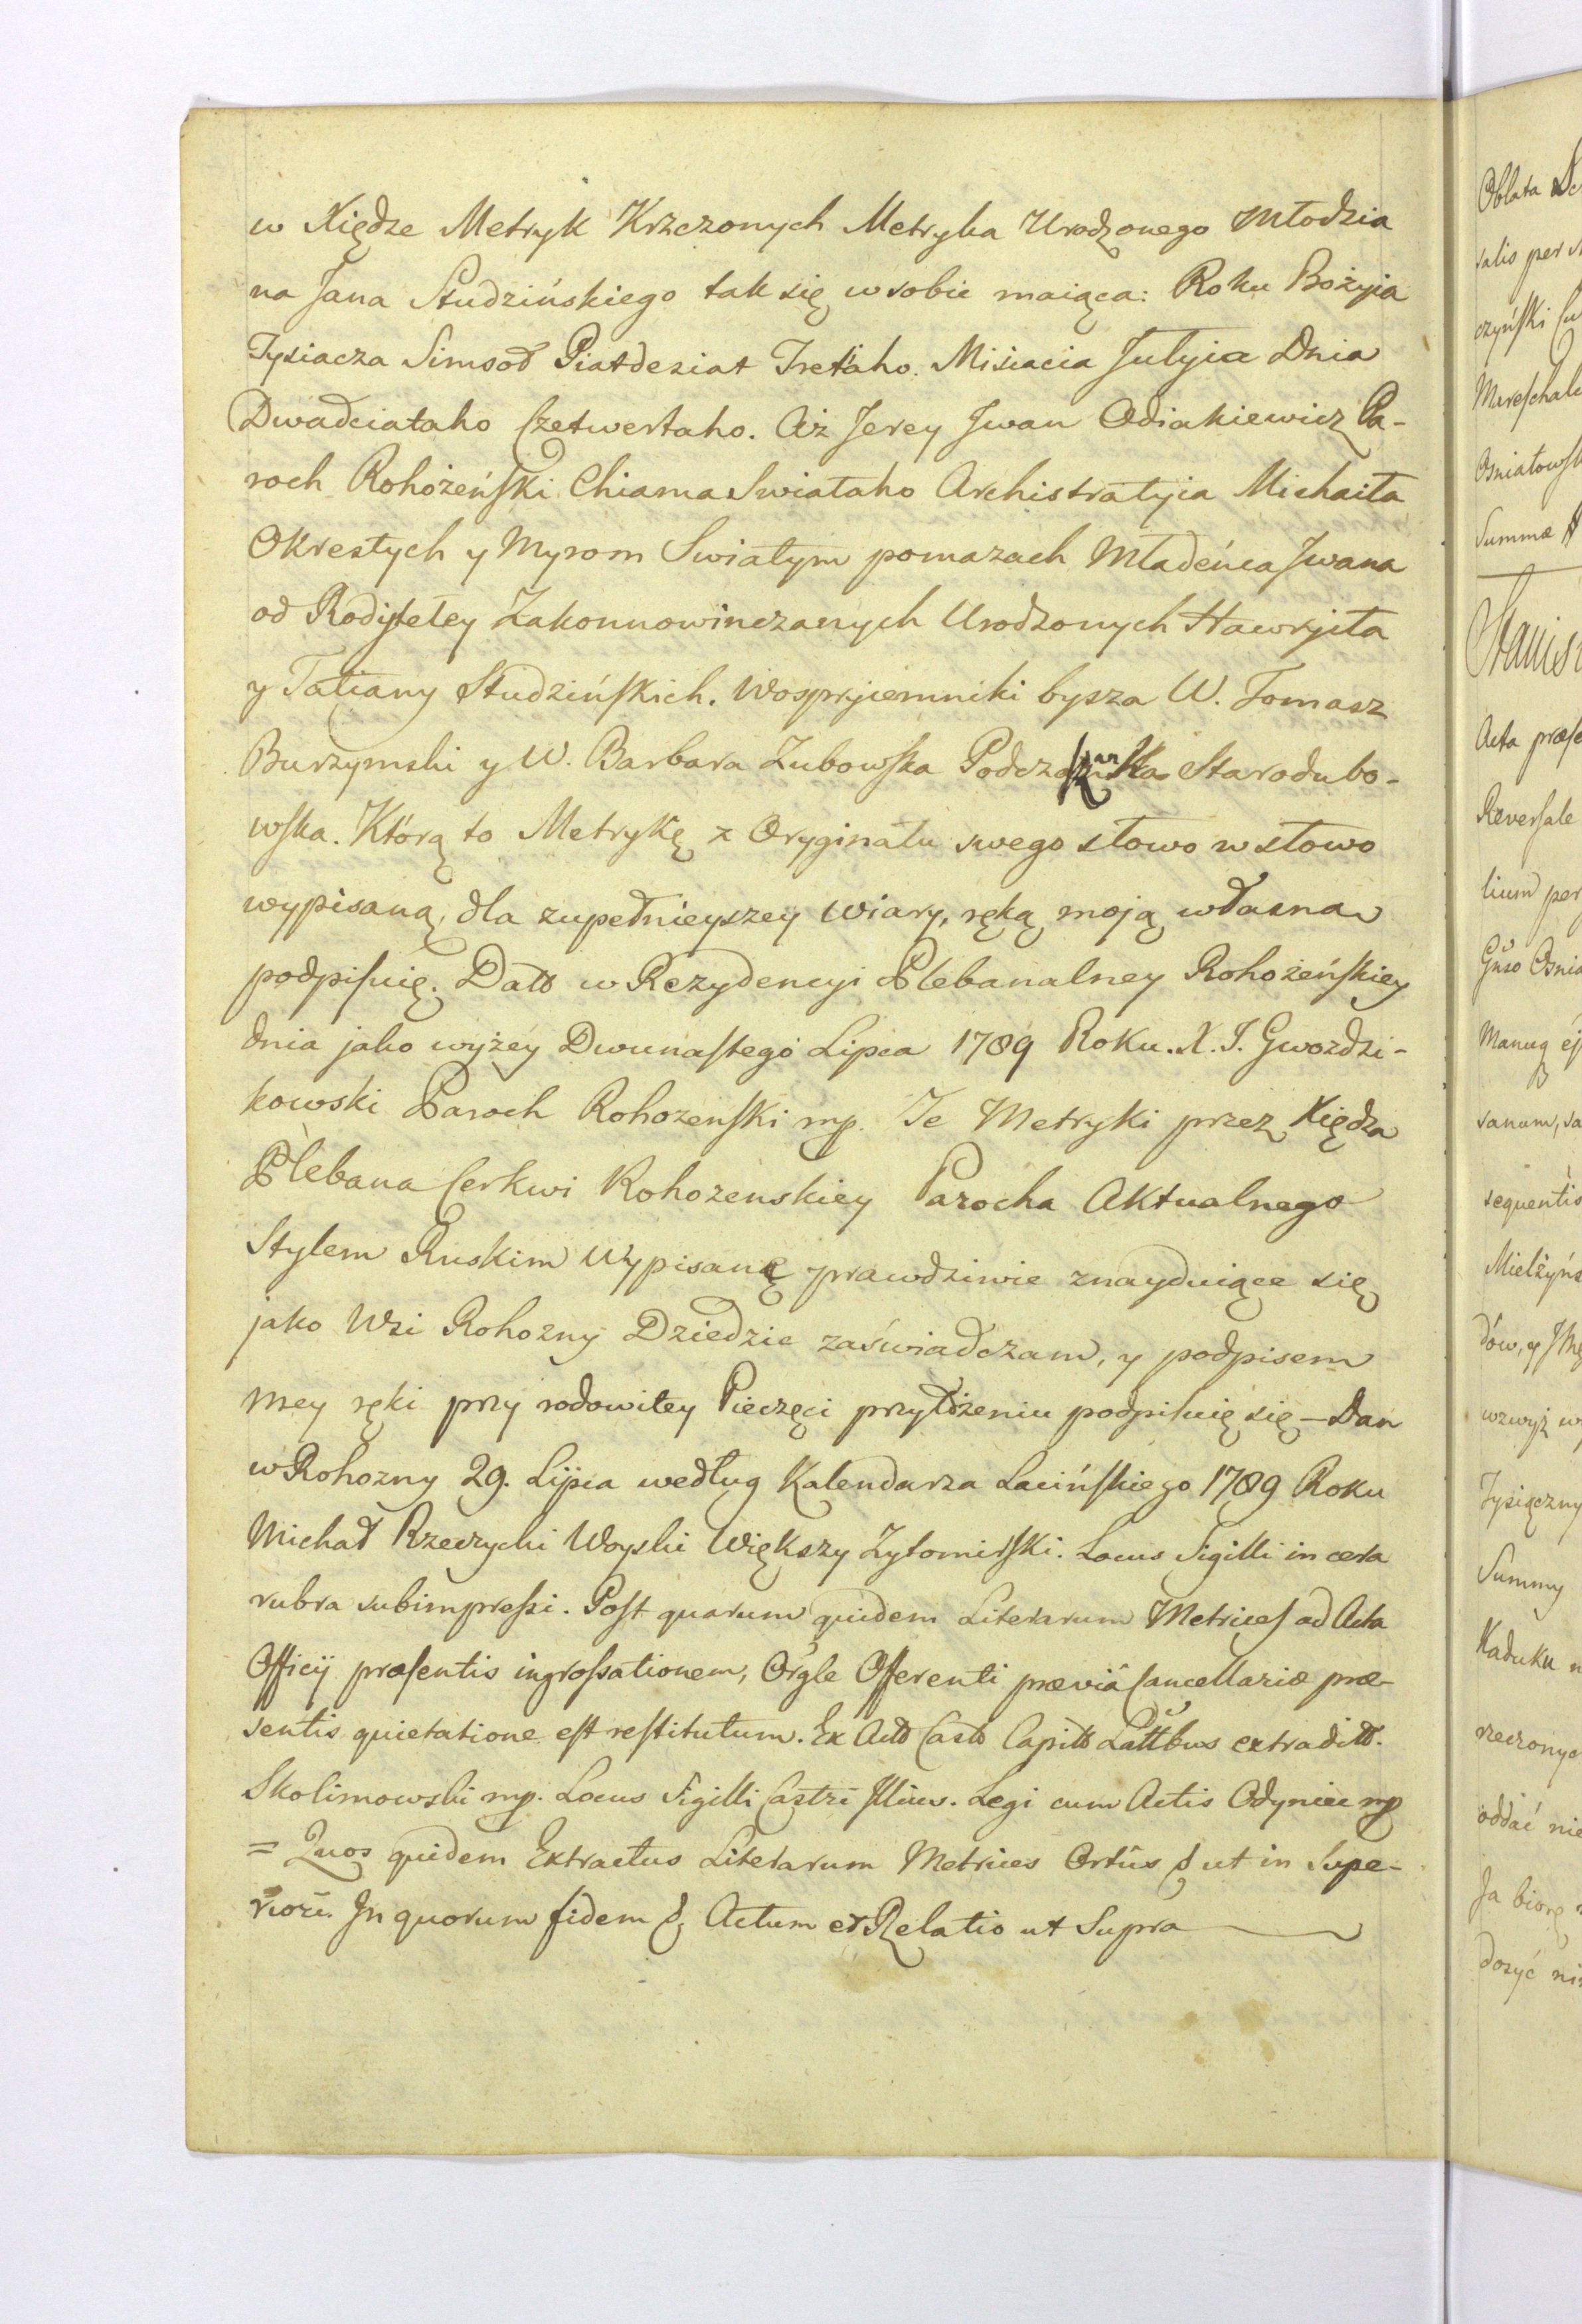 w Xiędze Metryk Krzczonych Metryka Urodzonego Młodzia
na Jana Studzińskiego tak się w sobie maiąca: Roku Bożyia
Tysiacza Simsoł Piatdesiat Tretaho. Misiacia Julyia Dnia
Dwadciataho Czetwertaho. Aż Jerey Jwan Odiakiewicz Pa-
roch Rohożeński Chrama Swiataho Archistratyia Michaiła
Okrestych y Myrom Swiatym pomazach Mładeńca Jwana
od Rodytełey Zakonnowinczanych Urodzonych Hawryiła
y Tatiany Studzińskich. Wospryiemniki bysza W. Tomasz
Burzymski y W. Barbara Zubowska Starodubo-
wska. Którą to Metrykę z Oryginału swego słowo w słowo
wypisaną, dla zupełnieyszey wiary, ręką moją własną
podpisuię. Datt w Rezydencyi Plebanalney Rohożeńskiey
dnia jako wyżey Dwunastego Lipca 1789 Roku. X. J. Gwozdzi-
kowski Paroch Rohozenski mp. Te Metryki przez Xiędza
Plebana Cerkwi Rohozenskiey Parocha Aktualnego
Stylem Ruskim Wypisanę prawdziwie znayduiące się
jako Wsi Rohozny Dziedzic zaświadczam, y podpisem
mey ręki przy rodowitey Pieczęci przyłożeniu podpisuię się – Dan
w Rohozny 29. Lipca według Kalendarza Łacińskiego 1789 Roku
Michał Rzeczycki Woyski Większy Zytomirski. Locus Sigilli in cera
rubra subimpressi. Post quarum quidem Literarum Metrices ad Acta
Officij præsentis ingrossationem, Orgle Offerenti præviâ Cancellariæ præ-
sentis quietatione est restitutum. Ex Actt Castr Capitt extraditt.
Skolimowski mp. Locus Sigilli Castri Legi cum Actis Odyniec mp
= Quos quidem Extractus Literarum Metrices Ortus & ut in Supe-
riori. Jn quorum fidem & Actum et Relatio ut Supra
Oblata
salis per
czyński
Mareschal
Summæ
Acta præs
Reversale
lium per
Manuq
sanum, sa
sequentis
Mielżyńs
dów, y
wzwyż
Tysiączny
Summy
Kaduku
rzeczonyc
oddać nie
Ja biorę
dosyć